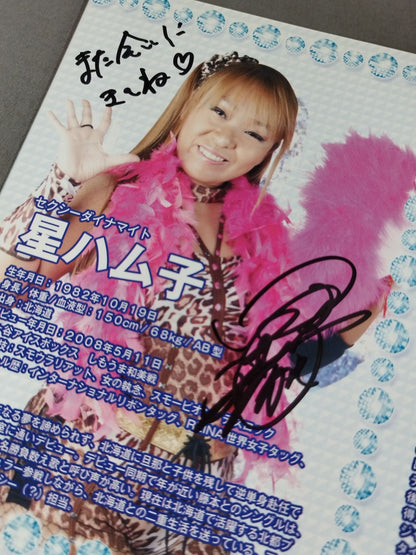 また会いに
き〜ね♡
セクシーダイナマイト
星ハム子
生年月日：1982年10月19日
身長／体重／血液型：150cm／68kg／AB型
出身：北海道
デビュー年月日：2008年5月11日
谷アイスボックス しもうま和美戦
スモウラリアット、女の執念、スモーピ
インターナショナルリボンタッグ、REINA世界女子タッグ、
なる夢を諦められず、北海道に旦那と子供を残して逆単身赴任で
デビュー同期で年が近い藤本とのシングルは、
勝負数え歌と呼び声が高い。現在は北海道で活躍する北都プ
参戦しながら、北海道との二重生活を送っている
（？）担当。